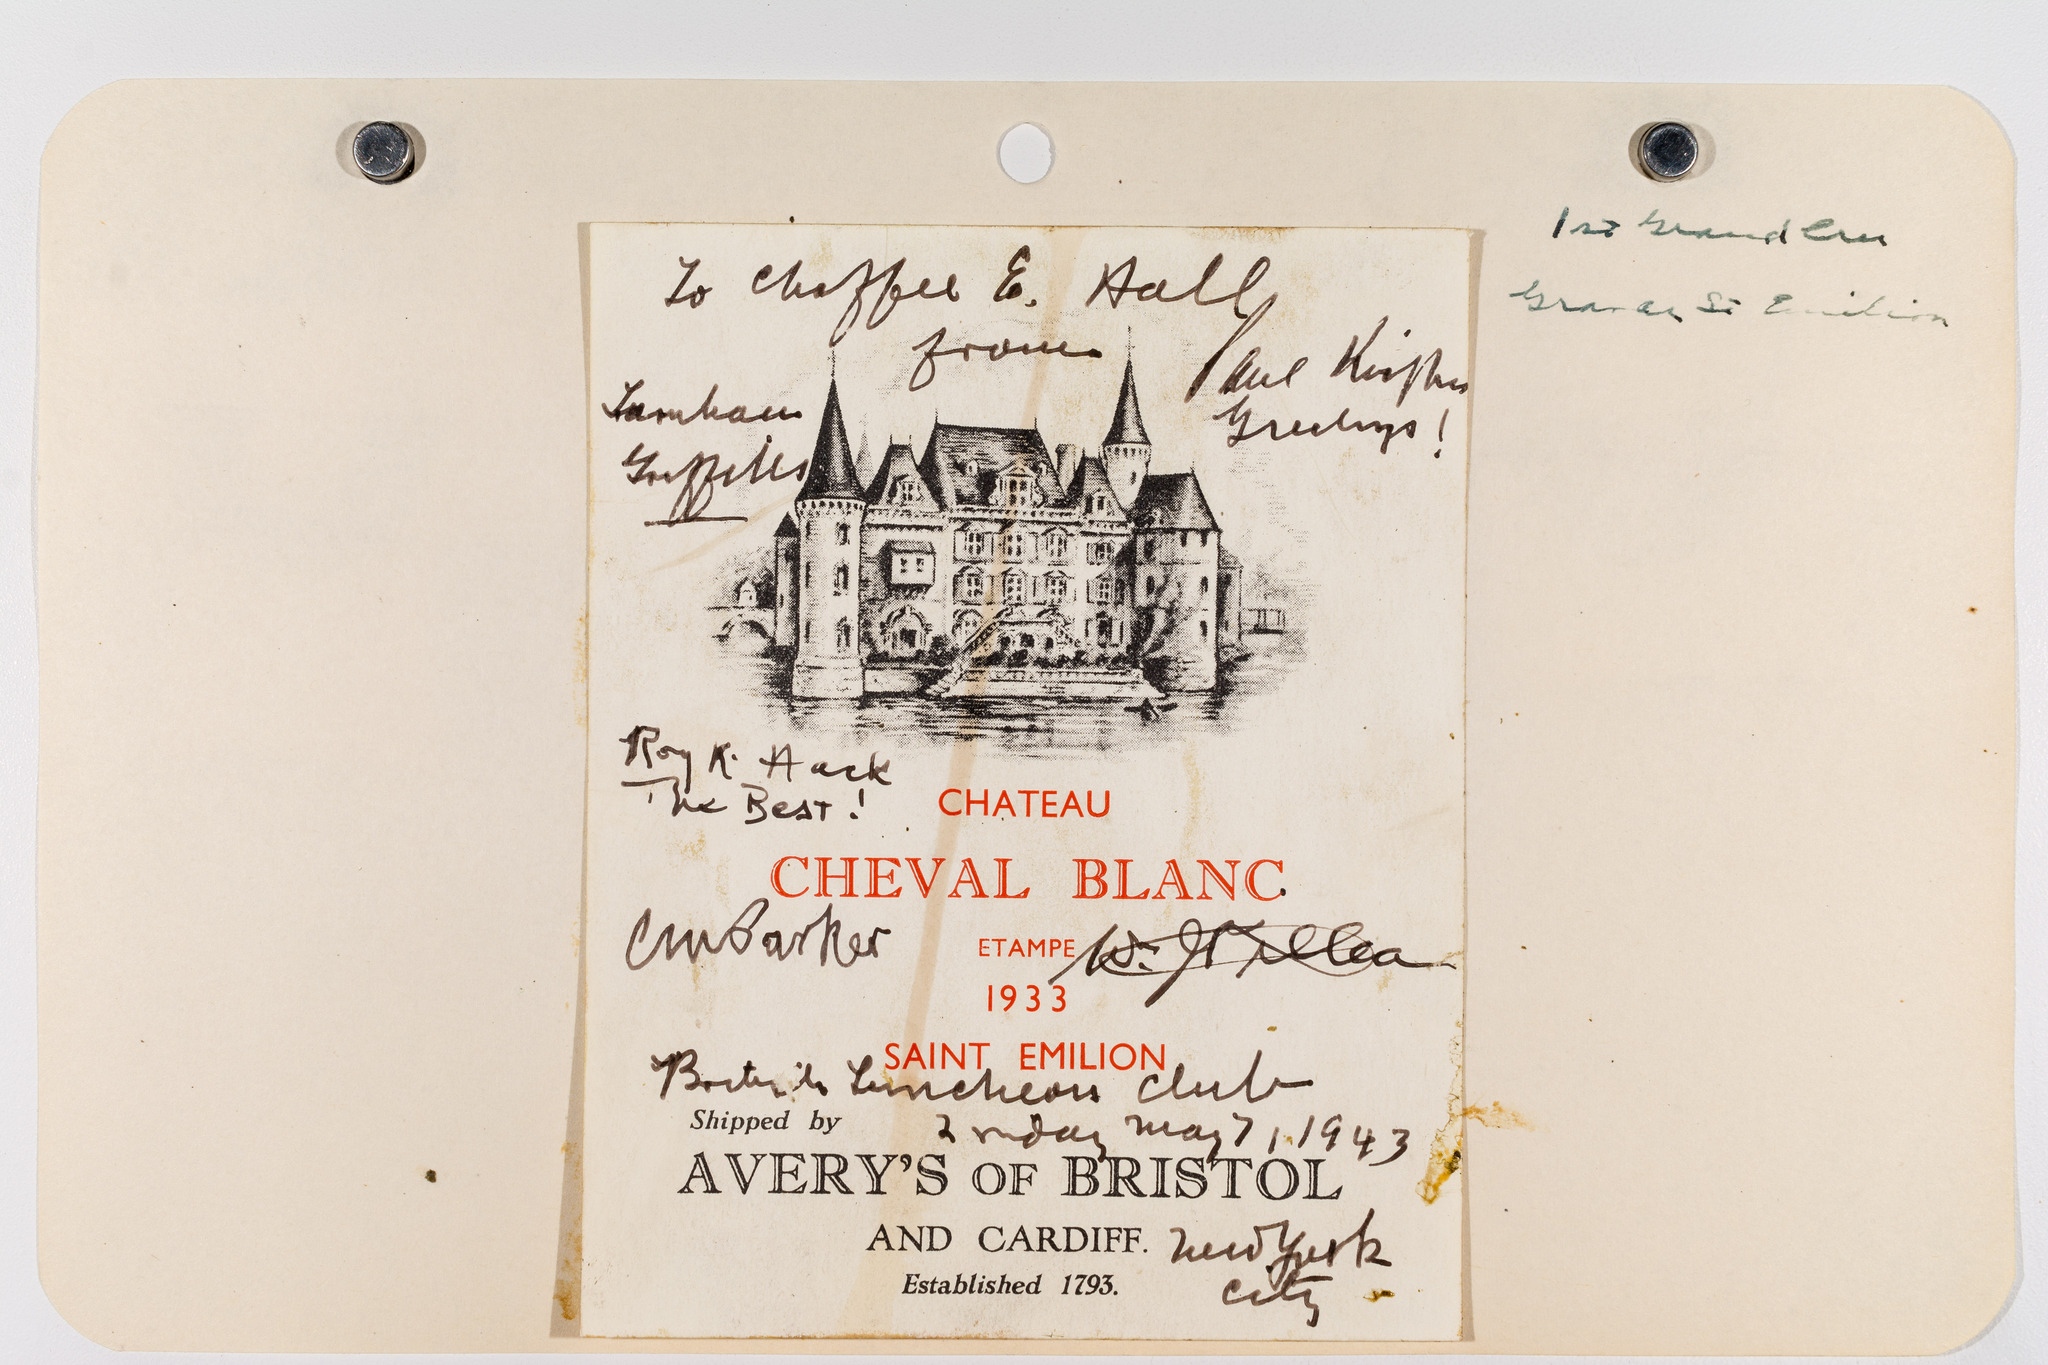 1st Grand Cru
Graves St Emilion
To Chaffee E. Hall
from
Farnham
Griffiths
Paul
Greetings!
Roy K. Hack
The Best!
CHATEAU
CHEVAL BLANC
CM Parker
ETAMPE
W. J.
1933
SAINT EMILION
Luncheon Club
Shipped by
May 7, 1943
AVERY'S OF BRISTOL
AND CARDIFF.
New York
City
Established 1793.